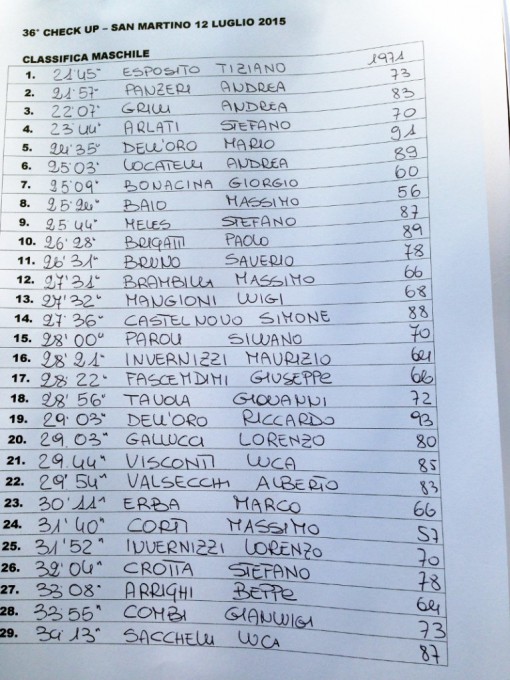 36° CHECK UP – SAN MARTINO 12 LUGLIO 2015
CLASSIFICA MASCHILE
1. 21'45" ESPOSITO TIZIANO 1971
2. 21'57" PANZERI ANDREA 73
3. 22'07" GRILLI ANDREA 83
4. 23'44" ARLATI STEFANO 70
5. 24'35" DELL'ORO MARIO 91
6. 25'03" LOCATELLI ANDREA 89
7. 25'09" BONACINA GIORGIO 60
8. 25'26" BAIO MASSIMO 56
9. 25'44" MELES STEFANO 87
10. 26'28" BRIGATTI PAOLO 89
11. 26'31" BRUNO SAVERIO 78
12. 27'31" BRAMBILLA MASSIMO 66
13. 27'32" MANGIONI LUIGI 68
14. 27'36" CASTELNOVO SIMONE 88
15. 28'00" PAROLI SILVANO 70
16. 28'21" INVERNIZZI MAURIZIO 64
17. 28'22" FASCENDIMI GIUSEPPE 66
18. 28'56" TAVOLA GIOVANNI 72
19. 29'03" DELL'ORO RICCARDO 93
20. 29'03" GALLUCCI LORENZO 80
21. 29'44" VISCONTI LUCA 85
22. 29'54" VALSECCHI ALBERTO 83
23. 30'11" ERBA MARCO 66
24. 31'40" CORTI MASSIMO 57
25. 31'52" INVERNIZZI LORENZO 70
26. 32'04" CROTTA STEFANO 78
27. 33'08" ARRIGHI BEPPE 64
28. 33'55" COMBI GIANLUIGI 73
29. 34'13" SACCHELLI LUCA 87